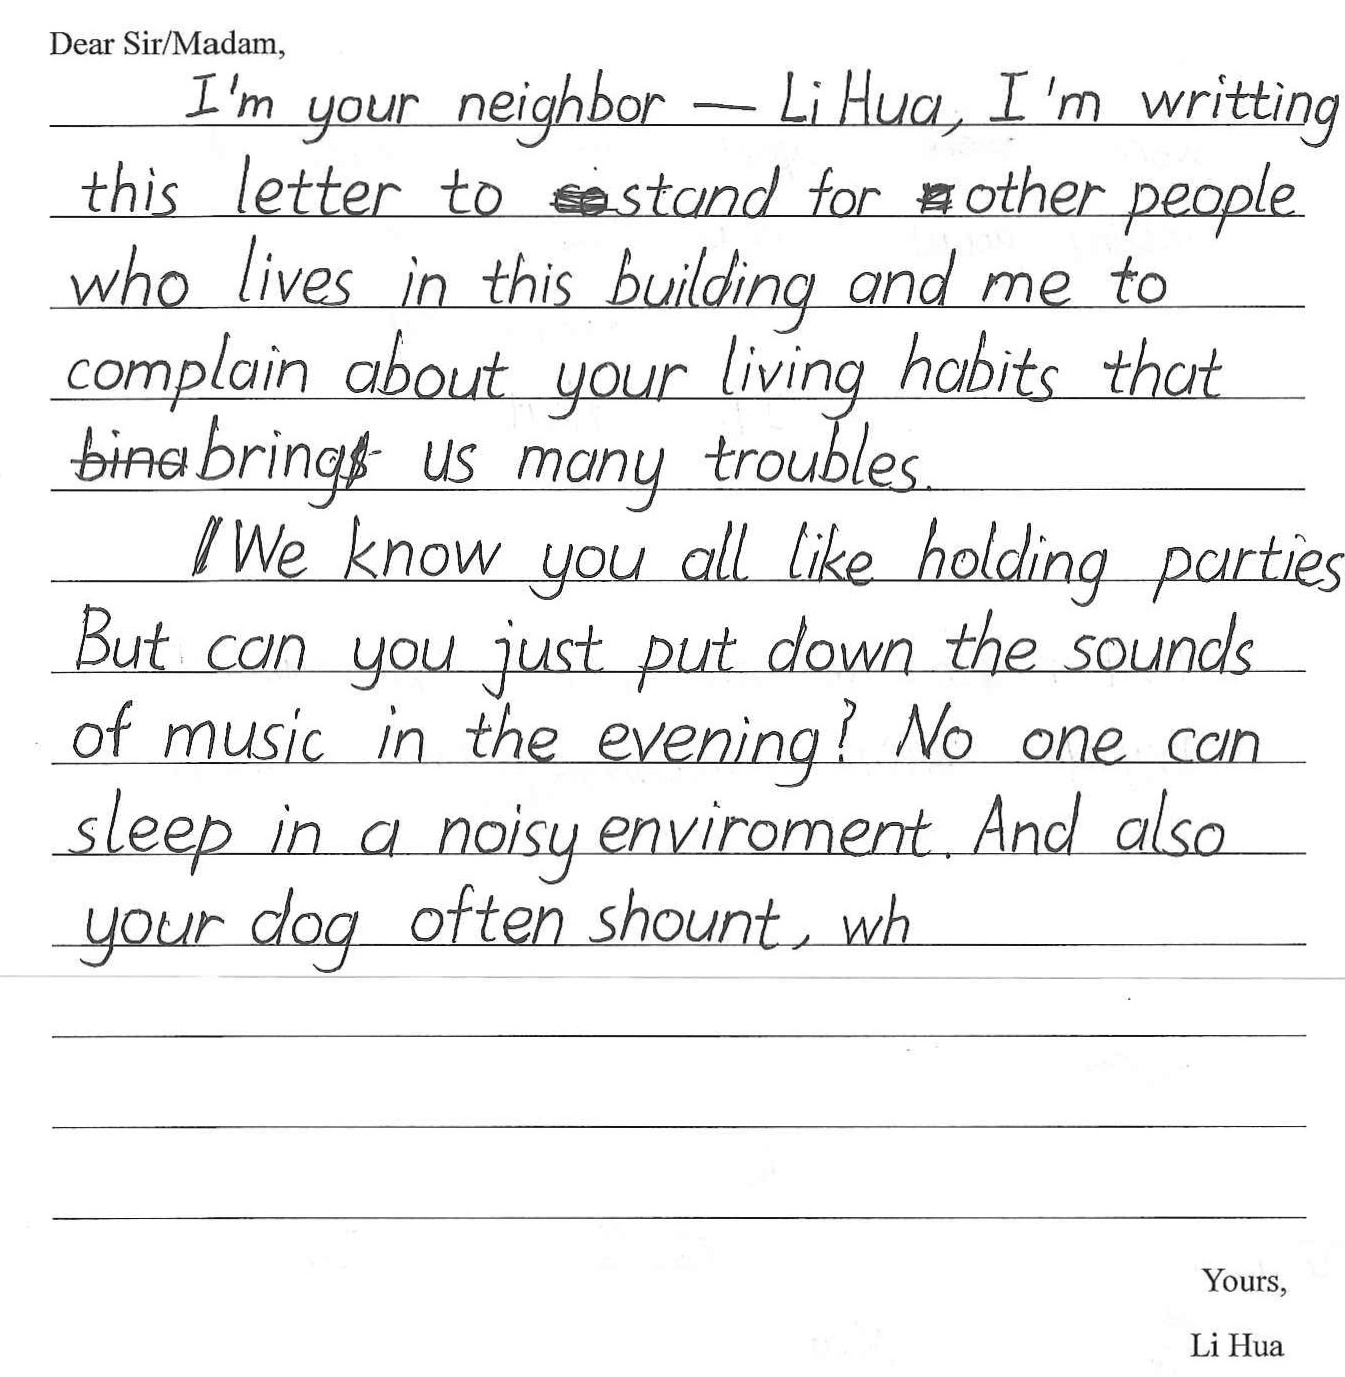 Dear Sir/Madam,
I'm your neighbor — Li Hua, I'm writting
this letter to stand for other people
who lives in this building and me to
complain about your living habits that
bring us many troubles.
We know you all like holding parties
But can you just put down the sounds
of music in the evening? No one can
sleep in a noisy enviroment. And also
your dog often shount, wh
Yours,
Li Hua